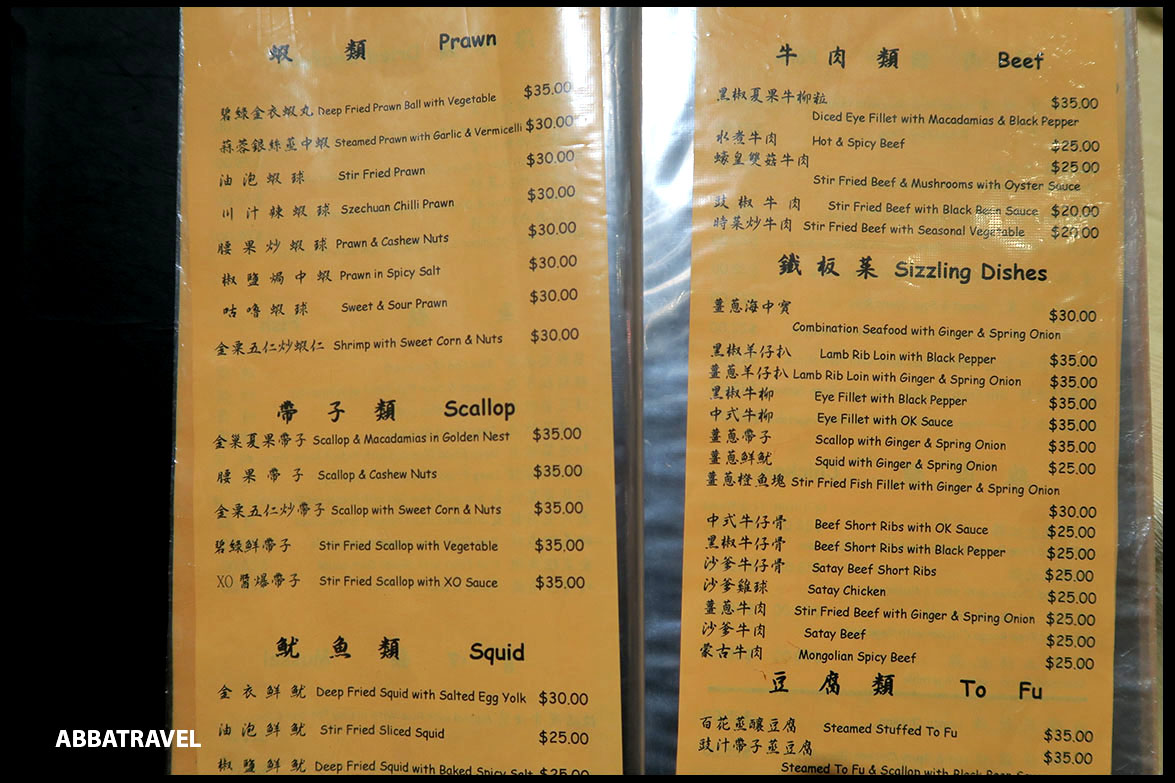 蝦 類 Prawn
碧綠金衣蝦丸 Deep Fried Prawn Ball with Vegetable $35.00
蒜蓉銀絲蒸中蝦 Steamed Prawn with Garlic & Vermicelli $30.00
油泡蝦球 Stir Fried Prawn $30.00
川汁辣蝦球 Szechuan Chilli Prawn $30.00
腰果炒蝦球 Prawn & Cashew Nuts $30.00
椒鹽焗中蝦 Prawn in Spicy Salt $30.00
咕嚕蝦球 Sweet & Sour Prawn $30.00
金粟五仁炒蝦仁 Shrimp with Sweet Corn & Nuts $30.00
帶子類 Scallop
金巢夏果帶子 Scallop & Macadamias in Golden Nest $35.00
腰果帶子 Scallop & Cashew Nuts $35.00
金粟五仁炒帶子 Scallop with Sweet Corn & Nuts $35.00
碧綠鮮帶子 Stir Fried Scallop with Vegetable $35.00
XO醬爆帶子 Stir Fried Scallop with XO Sauce $35.00
魷魚類 Squid
金衣鮮魷 Deep Fried Squid with Salted Egg Yolk $30.00
油泡鮮魷 Stir Fried Sliced Squid $25.00
椒鹽鮮魷 Deep Fried Squid with Baked Spicy Salt $25.00
牛肉類 Beef
黑椒夏果牛柳粒 $35.00
Diced Eye Fillet with Macadamias & Black Pepper
水煮牛肉 Hot & Spicy Beef $25.00
蠔皇雙菇牛肉 $25.00
Stir Fried Beef & Mushrooms with Oyster Sauce
豉椒牛肉 Stir Fried Beef with Black Bean Sauce $20.00
時菜炒牛肉 Stir Fried Beef with Seasonal Vegetable $20.00
鐵板菜 Sizzling Dishes
薑蔥海中寶 $30.00
Combination Seafood with Ginger & Spring Onion
黑椒羊仔扒 Lamb Rib Loin with Black Pepper $35.00
薑蔥羊仔扒 Lamb Rib Loin with Ginger & Spring Onion $35.00
黑椒牛柳 Eye Fillet with Black Pepper $35.00
中式牛柳 Eye Fillet with OK Sauce $35.00
薑蔥帶子 Scallop with Ginger & Spring Onion $35.00
薑蔥鮮魷 Squid with Ginger & Spring Onion $25.00
薑蔥橙魚塊 Stir Fried Fish Fillet with Ginger & Spring Onion
$30.00
中式牛仔骨 Beef Short Ribs with OK Sauce $25.00
黑椒牛仔骨 Beef Short Ribs with Black Pepper $25.00
沙爹牛仔骨 Satay Beef Short Ribs $25.00
沙爹雞球 Satay Chicken $25.00
薑蔥牛肉 Stir Fried Beef with Ginger & Spring Onion $25.00
沙爹牛肉 Satay Beef $25.00
蒙古牛肉 Mongolian Spicy Beef $25.00
豆腐類 To Fu
百花蒸釀豆腐 Steamed Stuffed To Fu $35.00
豉汁帶子蒸豆腐 $35.00
Steamed To Fu & Scallop with Black Bean
ABBATRAVEL